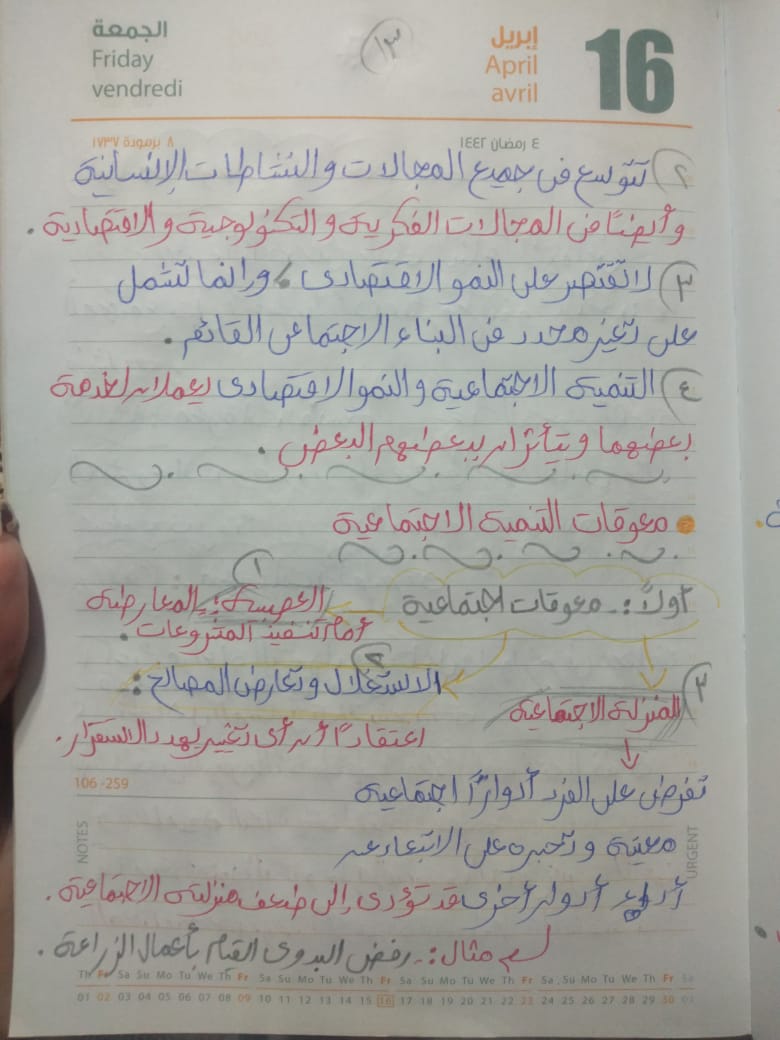 الجمعة
Friday
vendredi
١٣
إبريل
April
avril
16
٨ برمودة ١٧٣٧
٤ رمضان ١٤٤٢
٢) تتوسع فى جميع المجالات والنشاطات الإنسانية
وأيضًا فى المجالات الفكرية والتكنولوجية والاقتصادية .
٣) لا تقتصر على النمو الاقتصادى ، وإنما تشمل
على تغير محدد فى البناء الاجتماعى القائم .
٤) التنمية الاجتماعية والنمو الاقتصادى يعملان لخدمة
بعضهما ويتأثران ببعضهم البعض .
معوقات التنمية الاجتماعية
أولاً :- معوقات اجتماعية
١
العصبية :- المعارضة
أمام تنفيذ المشروعات .
٢
الاستغلال وتعارض المصالح :-
اعتقادًا أن أى تغيير يهدد الاستقرار .
٣
المنزلة الاجتماعية
تفرض على الفرد أدوارًا اجتماعية
معينة وتجبره على الابتعاد عن
أدوار أخرى قد تؤدى إلى ضعف منزلته الاجتماعية .
مثال :- رفض البدوى القيام بأعمال الزراعة .
106-259
NOTES
URGENT
Th Fr Sa Su Mo Tu We Th Fr Sa Su Mo Tu We Th Fr Sa Su Mo Tu We Th Fr Sa Su Mo Tu We Th Fr Sa
01 02 03 04 05 06 07 08 09 10 11 12 13 14 15 16 17 18 19 20 21 22 23 24 25 26 27 28 29 30 01